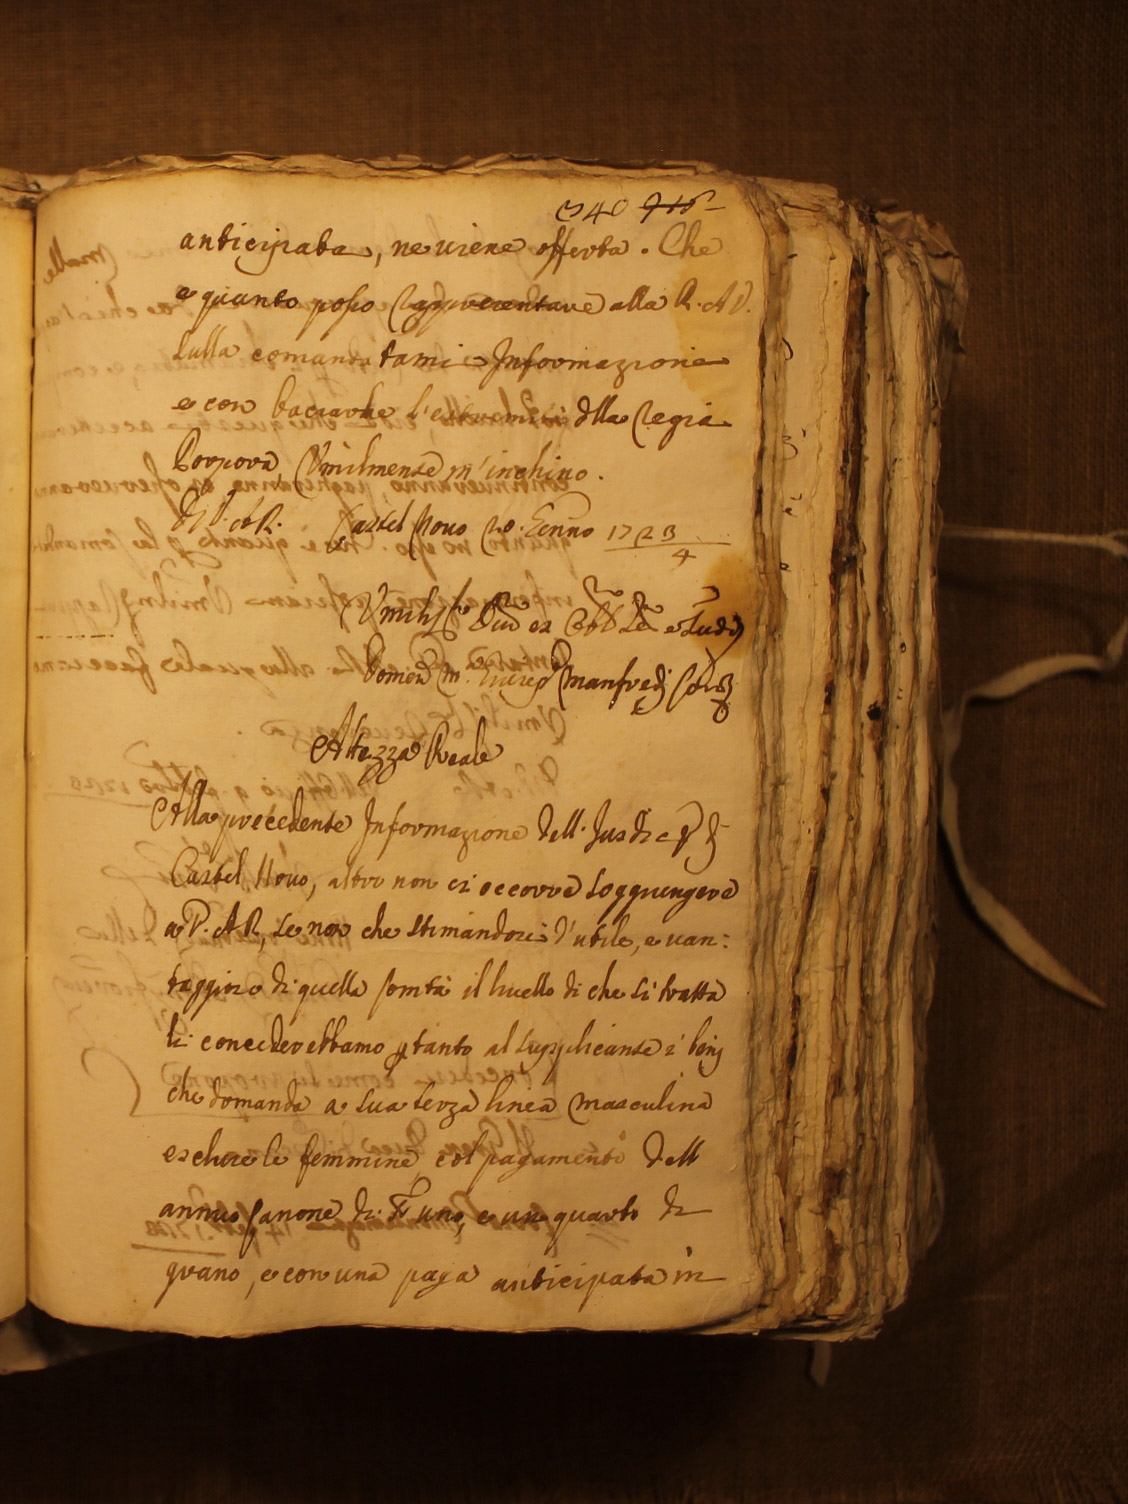 340 716
anticipata, ne viene offerta. Che
e quanto posso rappresentare alla R. A V.
sulla comandatami Informazione
e con baciarle l'estremità dlla Regia
Porpora Umilmente m'inchino.
Di V. A R. Castel Novo 20. Genno 1723/4
Umiliss.o
Domen.o M. Manfredi
Altezza Reale
Alla precedente Informazione dell. Jusdic.e di
Castel Novo, altro non ci occorre soggiungere
a V. A R, se non che stimandosi d'utile, e van:
taggio di quella Comtà il livello di che si tratta
li concederebbamo ptanto al supplicante i beni
che domanda a sua terza linea masculina
escluse le femmine col pagamento dell
annuo Canone di uno, e un quarto di
grano, e con una paga anticipata in